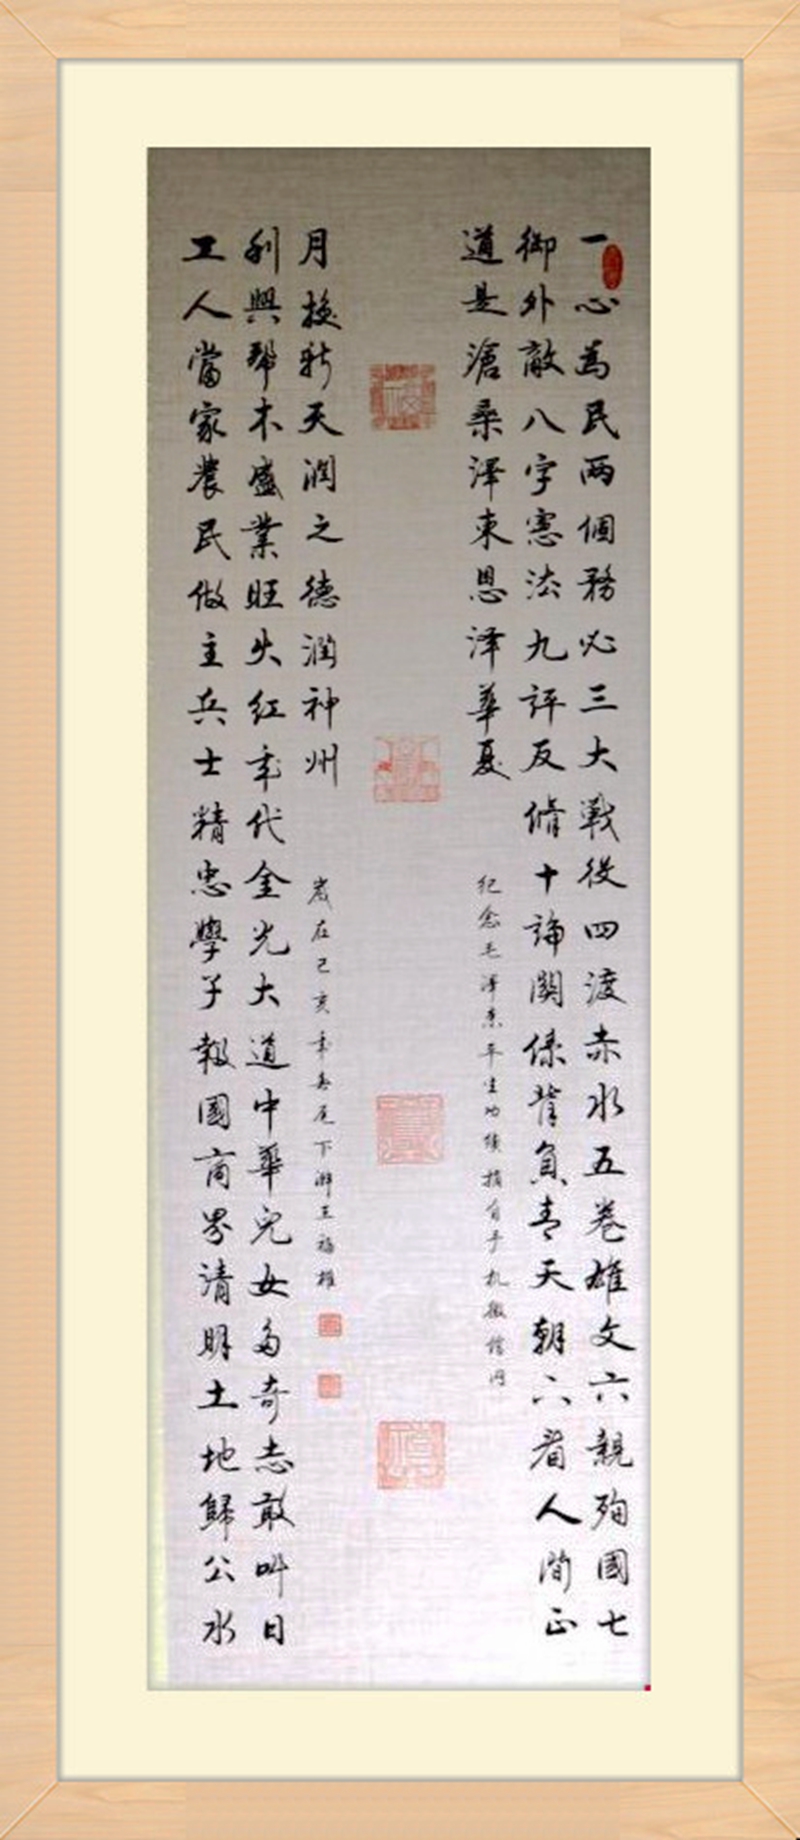 一心為民两個務必三大戰役四渡赤水五卷雄文六親殉國七
御外敵八字憲法九評反脩十論關係背負青天朝下看人間正
道是滄桑澤東恩澤華夏
纪念毛澤東平生功績摘自手机微信网
工人當家農民做主兵士精忠學子報國商界清明土地歸公水
利興邦木盛業旺火红年代金光大道中華兒女多奇志敢叫日
月换新天潤之德潤神州
歲在己亥年尾下澣王福雄